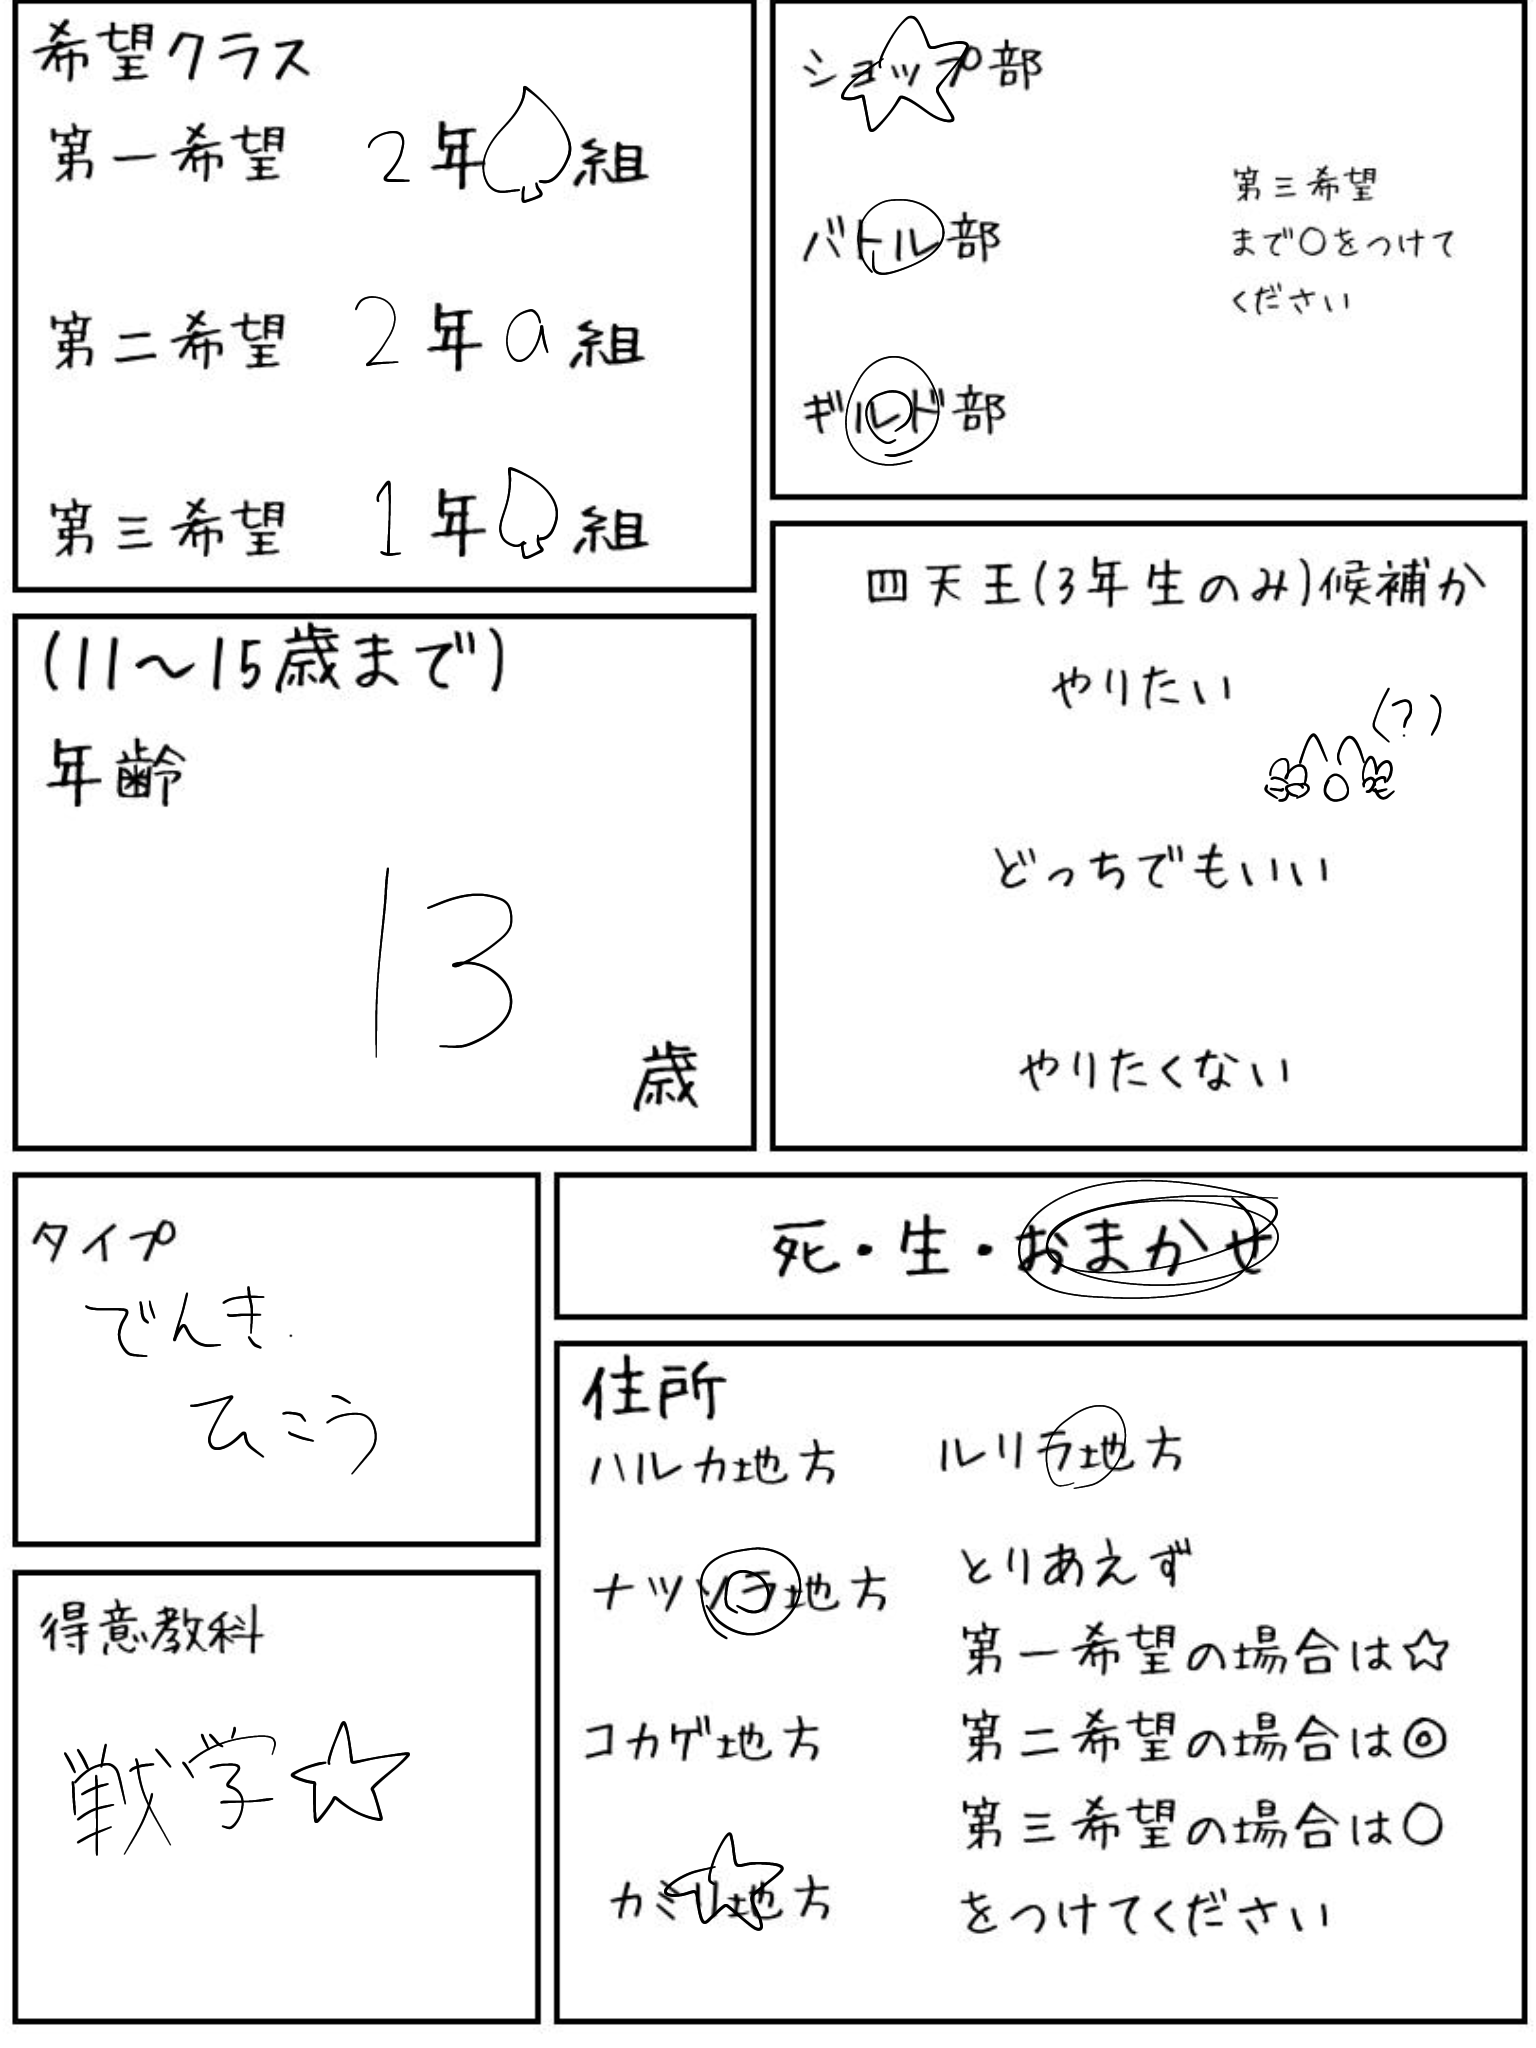 希望クラス
第一希望 2年♠組
第二希望 2年a組
第三希望 1年♠組
ショップ部
バトル部
ギルド部
第三希望
まで〇をつけて
ください
(11〜15歳まで)
年齢
13
歳
四天王(3年生のみ)候補か
やりたい
(?)
どっちでもいい
やりたくない
タイプ
でんき
ひこう
死・生・おまかせ
得意教科
戦学☆
住所
ハルカ地方 ルリラ地方
ナツソラ地方
コカゲ地方
カミリ地方
とりあえず
第一希望の場合は☆
第二希望の場合は◎
第三希望の場合は〇
をつけてください